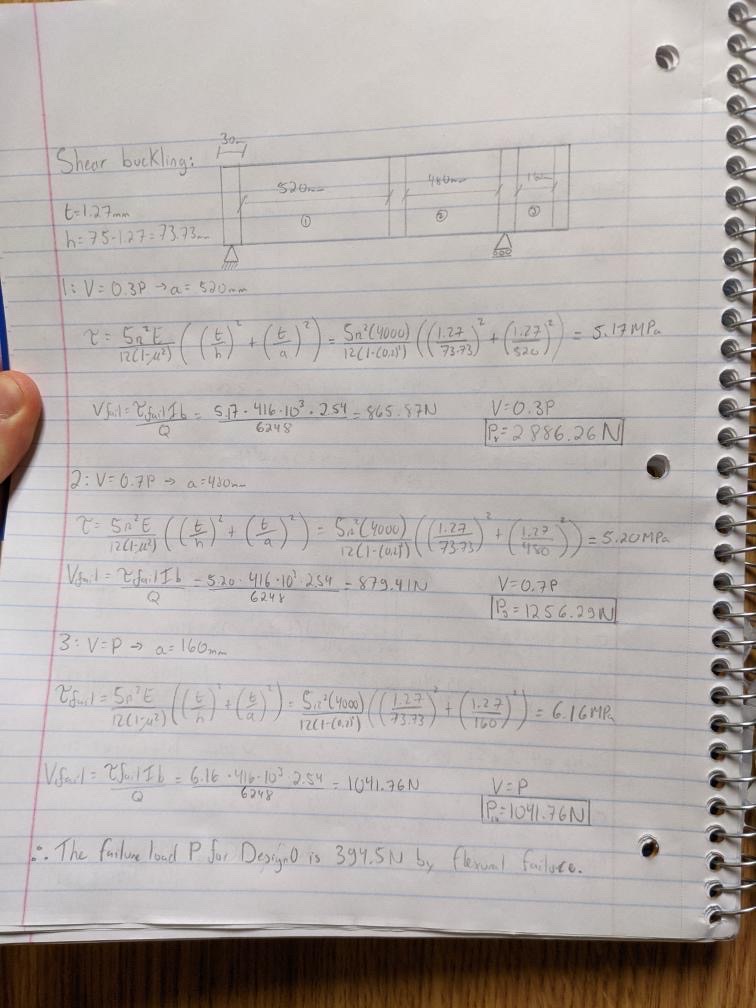 30mm
Shear buckling:
520mm
480mm
①
②
③
t=1.27mm
h=75-1.27=73.73mm
1: V=0.3P → a=520mm
τ = 5π²E/12(1-μ²) ((t/h)² + (t/a)²) = 5π²(4000)/12(1-(0.2)²) ((1.27/73.73)² + (1.27/520)²) = 5.17MPa
Vfail = τfail I b/Q = 5.17·416·10³·2.54/6248 = 865.87N V=0.3P
= 2886.26N
2: V=0.7P → a=480mm
τ = 5π²E/12(1-μ²) ((t/h)² + (t/a)²) = 5π²(4000)/12(1-(0.2)²) ((1.27/73.73)² + (1.27/480)²) = 5.20MPa
Vfail = τfail I b/Q = 5.20·416·10³·2.54/6248 = 879.41N V=0.7P
P₉ = 1256.29N
3: V=P → a=160mm
τfail = 5π²E/12(1-μ²) ((t/h)² + (t/a)²) = 5π²(4000)/12(1-(0.2)²) ((1.27/73.73)² + (1.27/160)²) = 6.16MPa
Vfail = τfail I b/Q = 6.16·416·10³·2.54/6248 = 1041.76N V=P
P₁₀=1041.76N
∴ The failure load P for Design0 is 394.5N by flexural failure.